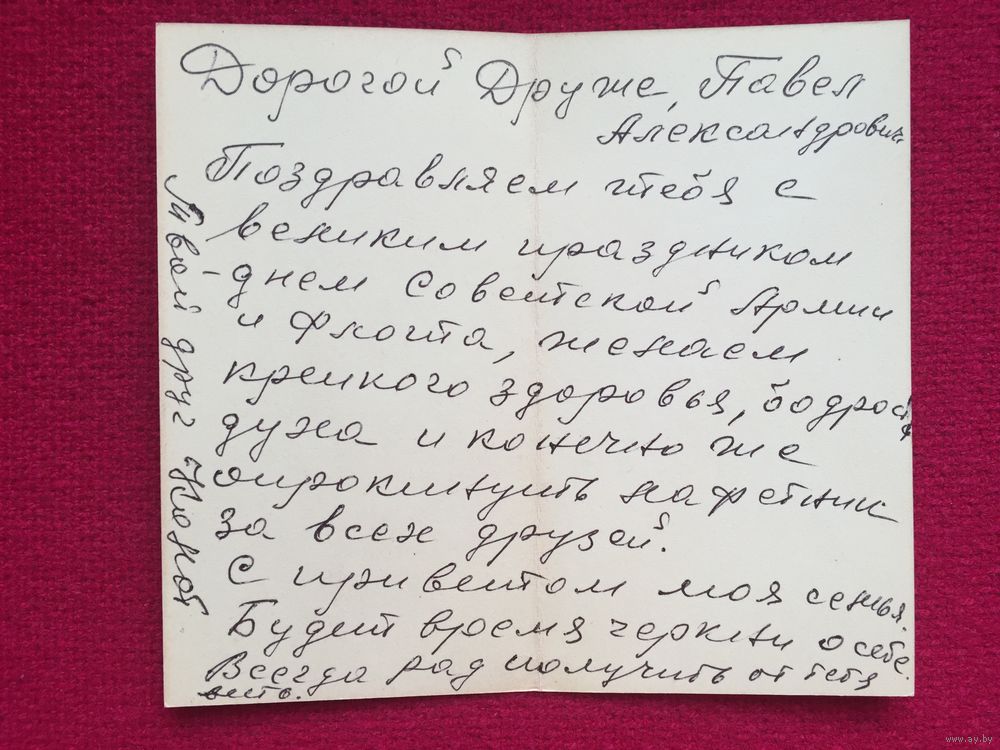 Дорогой Друже, Павел
Александрович
Поздравляем тебя с
великим праздником
- днем Советской Армии
и Флота, желаем
крепкого здоровья, бодрости
духа и конечно же
опрокинуть лафетник
за всех друзей.
С приветом моя семья.
Будет время черкни о себе.
Всегда рад получить от тебя
весть.
Твой друг
www.ay.by